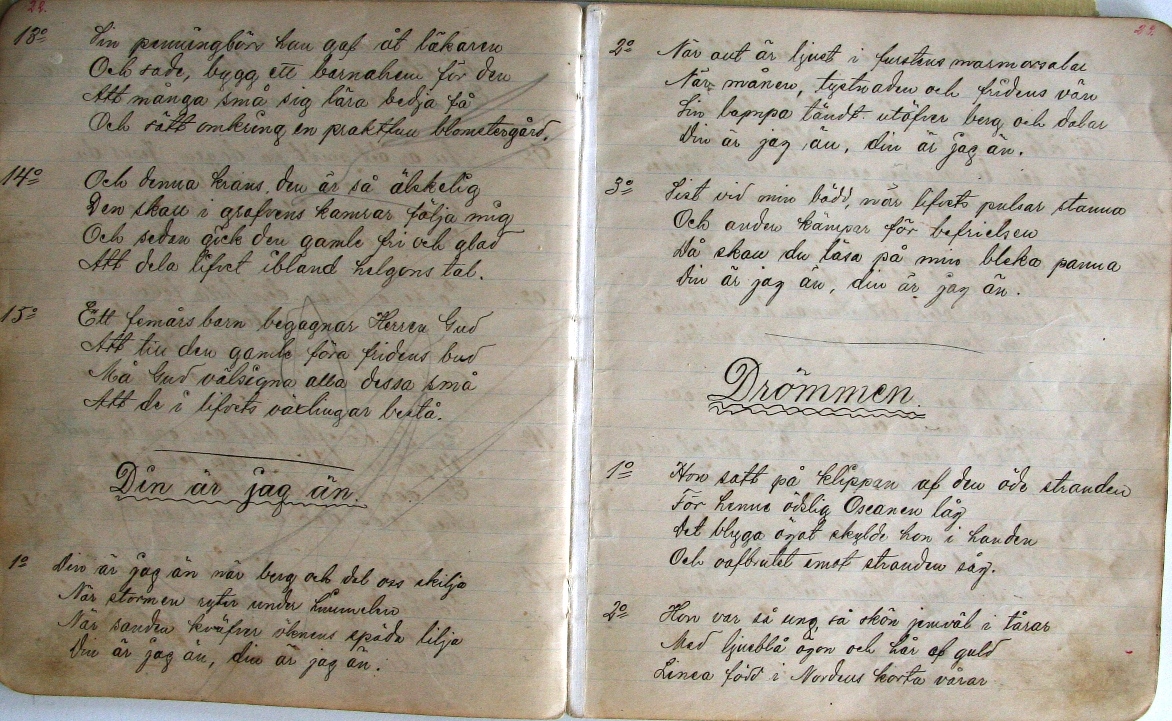 22.
13º Sin penningbörs han gaf åt läkaren
Och sade, bygg ett barnahem för den
Att många små sig lära bedja få
Och sätt omkring en praktfull blomstergård.
14º Och denna krans, den är så älskelig
Den skall i grafvens kamrar följa mig
Och sedan gick den gamle fri och glad
Att dela lifvet ibland helgons tal.
15º Ett femårs barn begagnar Herren Gud
Att till den gamle föra fridens bud
Må Gud välsigna alla dessa små
Att de i lifvets växlingar bestå.
Din är jag än.
1º Din är jag än när berg och dal oss skilja
När stormen ryter under himmelen
När sanden kväfver öknens späda lilja
Din är jag än, din är jag än.
23.
2º När allt är ljust i furstens marmorsalar
När månen, tystnaden och fridens vän
Sin lampa tändt utöfver berg och dalar
Din är jag än, din är jag än.
3º Sist vid min bädd, när lifvets pulsar stanna
Och anden kämpar för befrielsen
Då skall du läsa på min bleka panna
Din är jag än, din är jag än.
Drömmen.
1º Hon satt på klippan af den öde stranden
För henne ödslig Oceanen låg
Det blyga ögat skylde hon i handen
Och oafbrutet emot stranden såg.
2º Hon var så ung, så skön jemväl i tårar
Med ljusblå ögon och hår af guld
Linea född i Nordens korta vårar